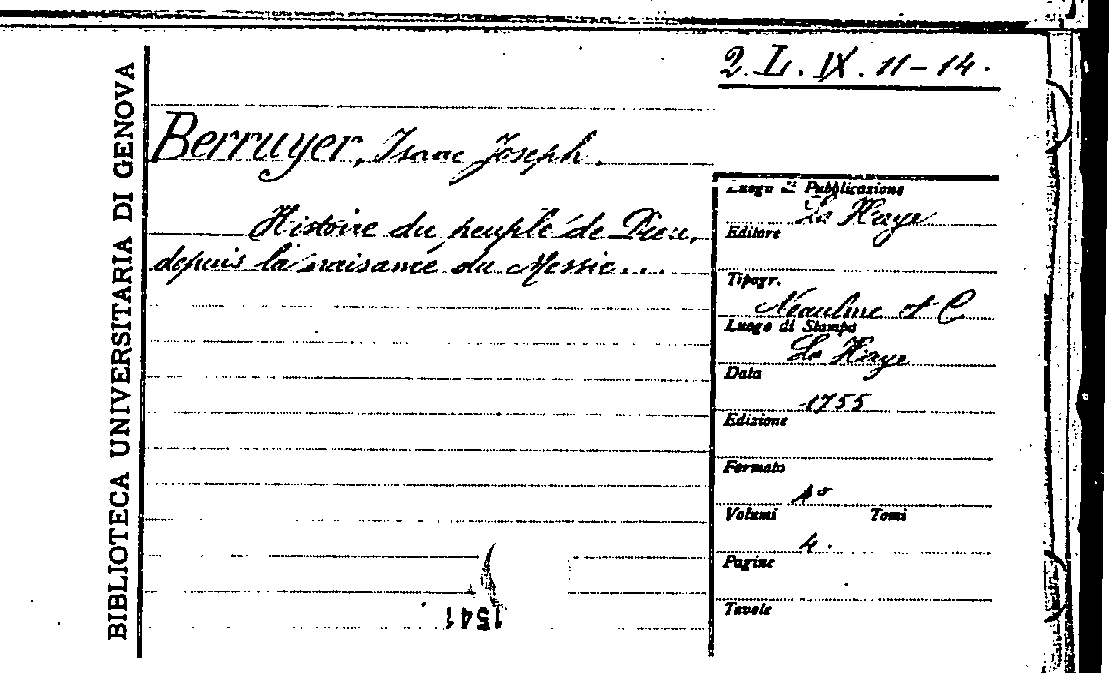 BIBLIOTECA UNIVERSITARIA DI GENOVA
2. L. IX. 11-14.
Berruyer, Isaac Joseph.
Histoire du peuple de Dieu,
depuis la naisance du Messie...
Luogo di Pubblicazione
La Haye
Editore
Tipogr.
Neaulme et C
Luogo di Stampa
La Haye
Data
1755
Edizione
Formato
4°
Volumi Tomi
4.
Pagine
Tavole
1541